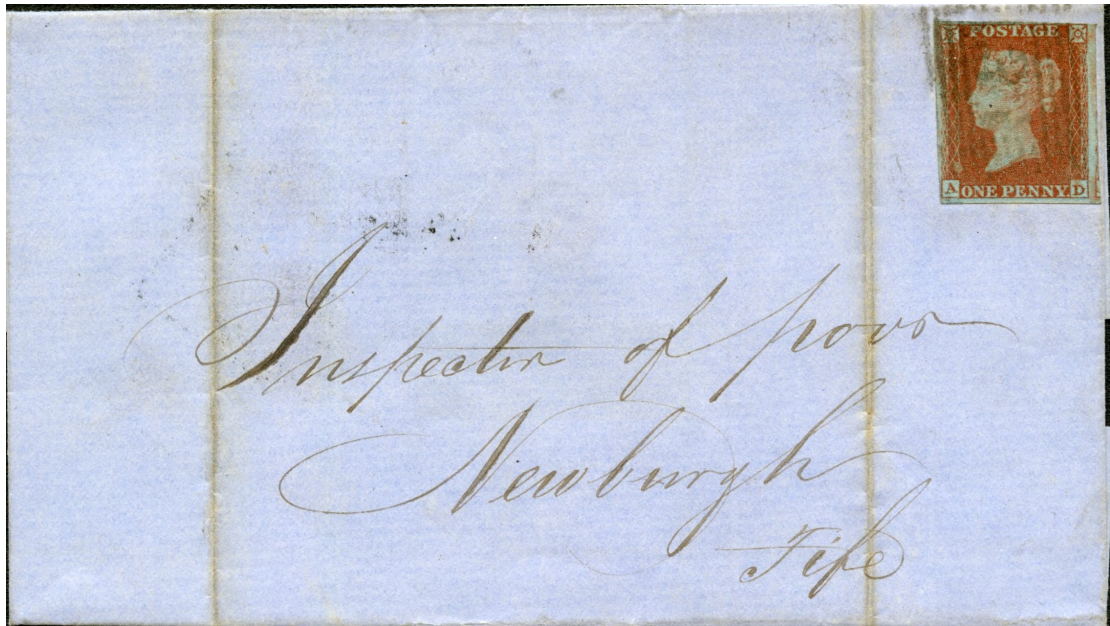 POSTAGE
A ONE PENNY D
Inspector of poor
Newburgh
Fife